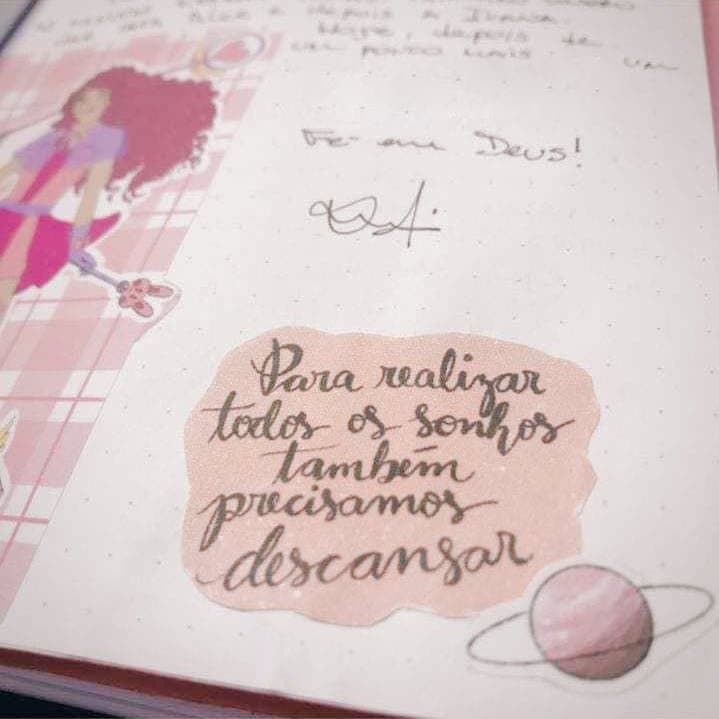 depois a
Hoje, depois de
um pouco mais. um
Fé em Deus!
Para realizar
todos os sonhos
também
precisamos
descansar